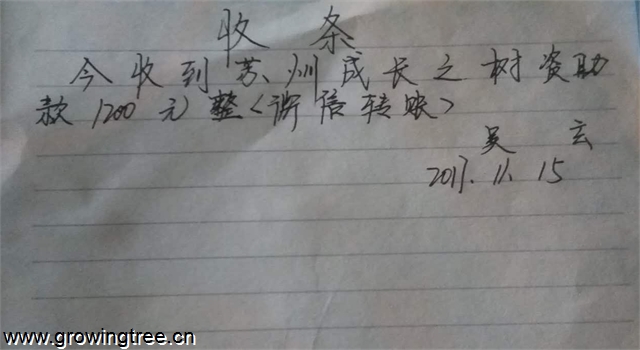 收 条
今收到苏州成长之树资助
款1200元整<微信转账>
吴 玄
2017.11.15
www.growingtree.cn